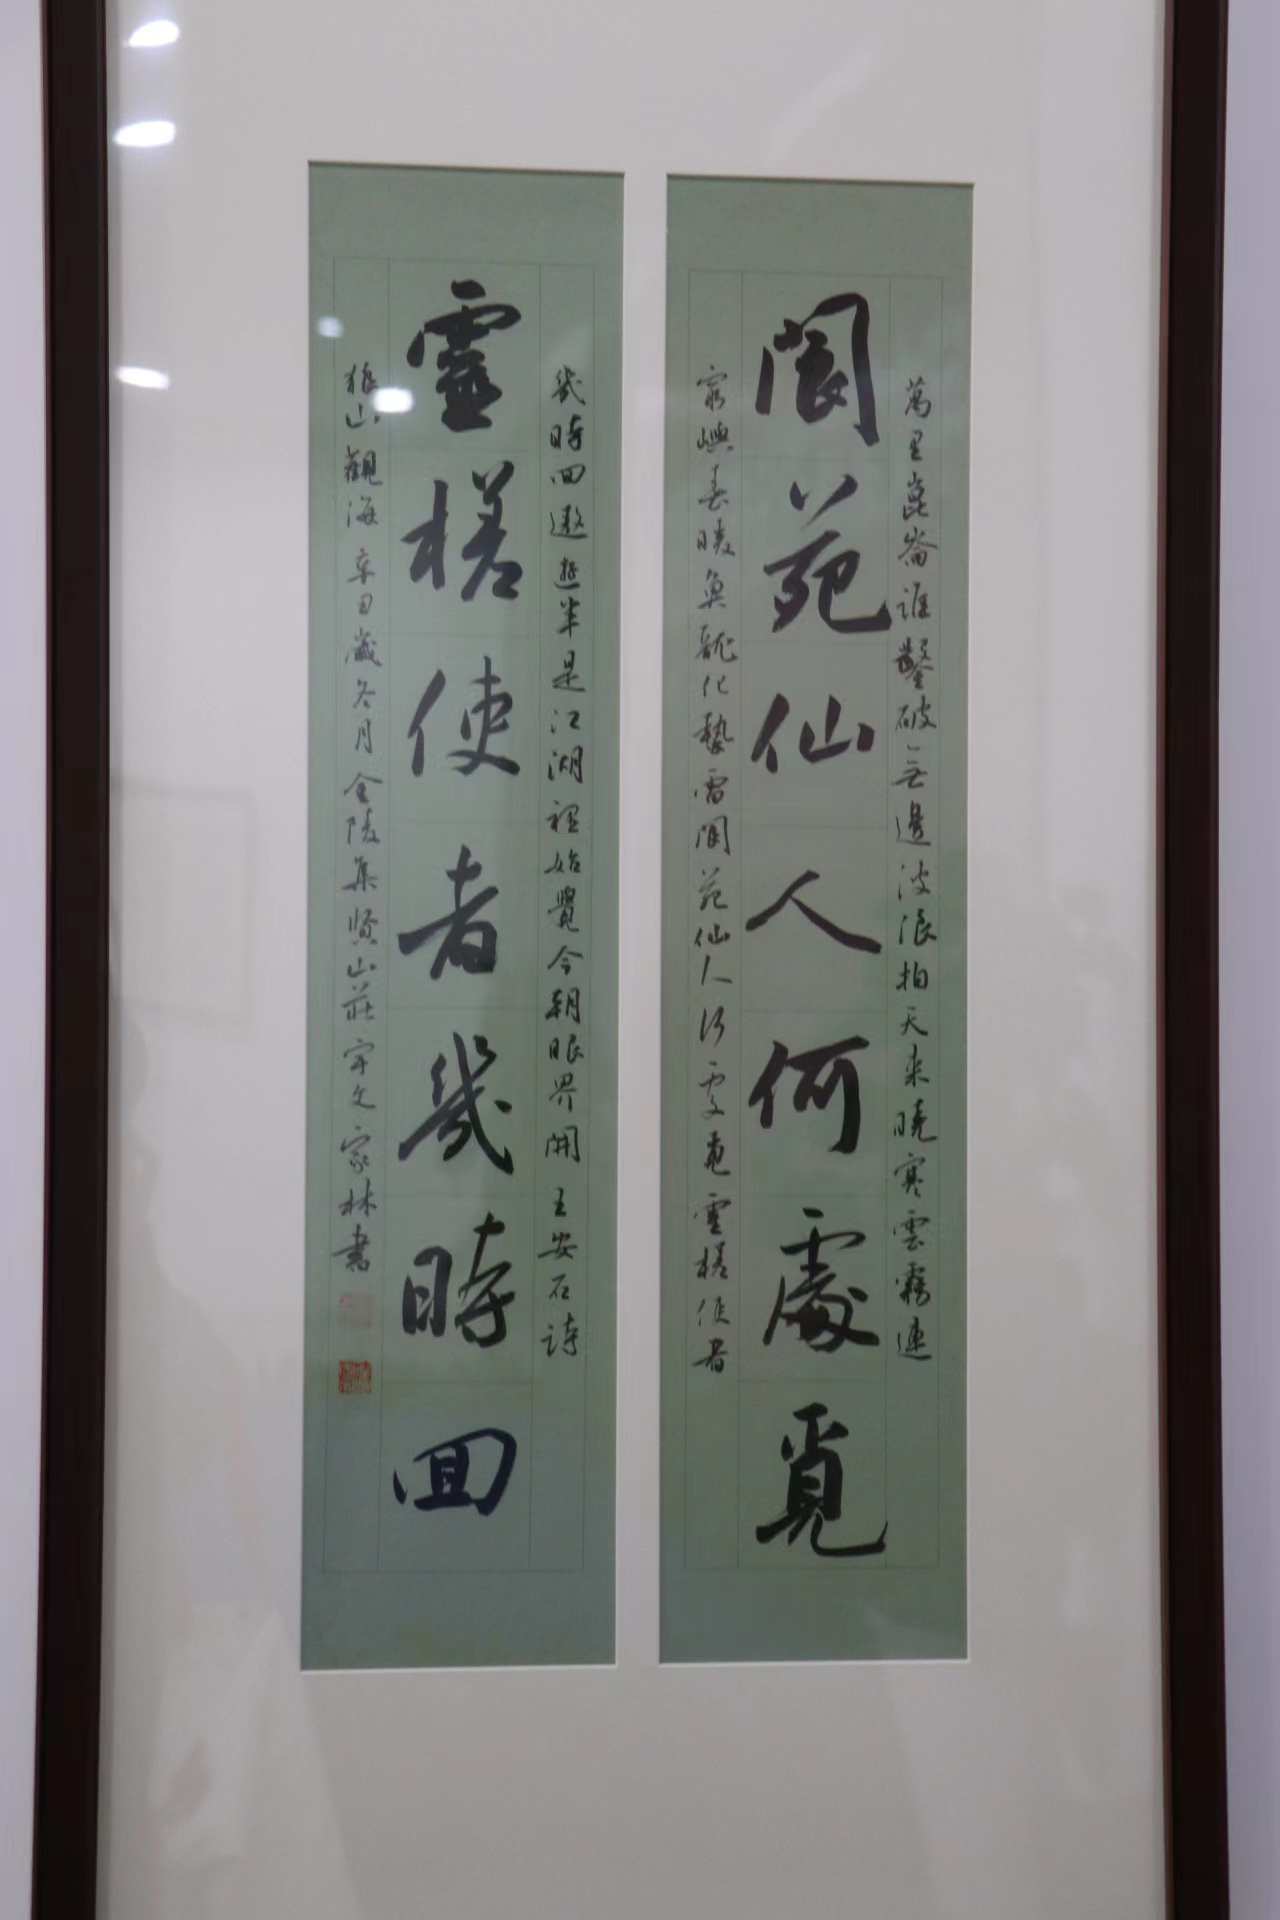 萬里崑崙誰鑿破無邊波浪拍天来曉寒雲霧連
閬苑仙人何處覓
窮嶼春暖魚龍化蟄雷閬苑仙人何處覓靈槎使者
幾時回遨遊半是江湖裡始覺今朝眼界開 王安石詩
靈槎使者幾時回
狼山觀海 辛丑歲冬月金陵集賢山莊宇文家林書